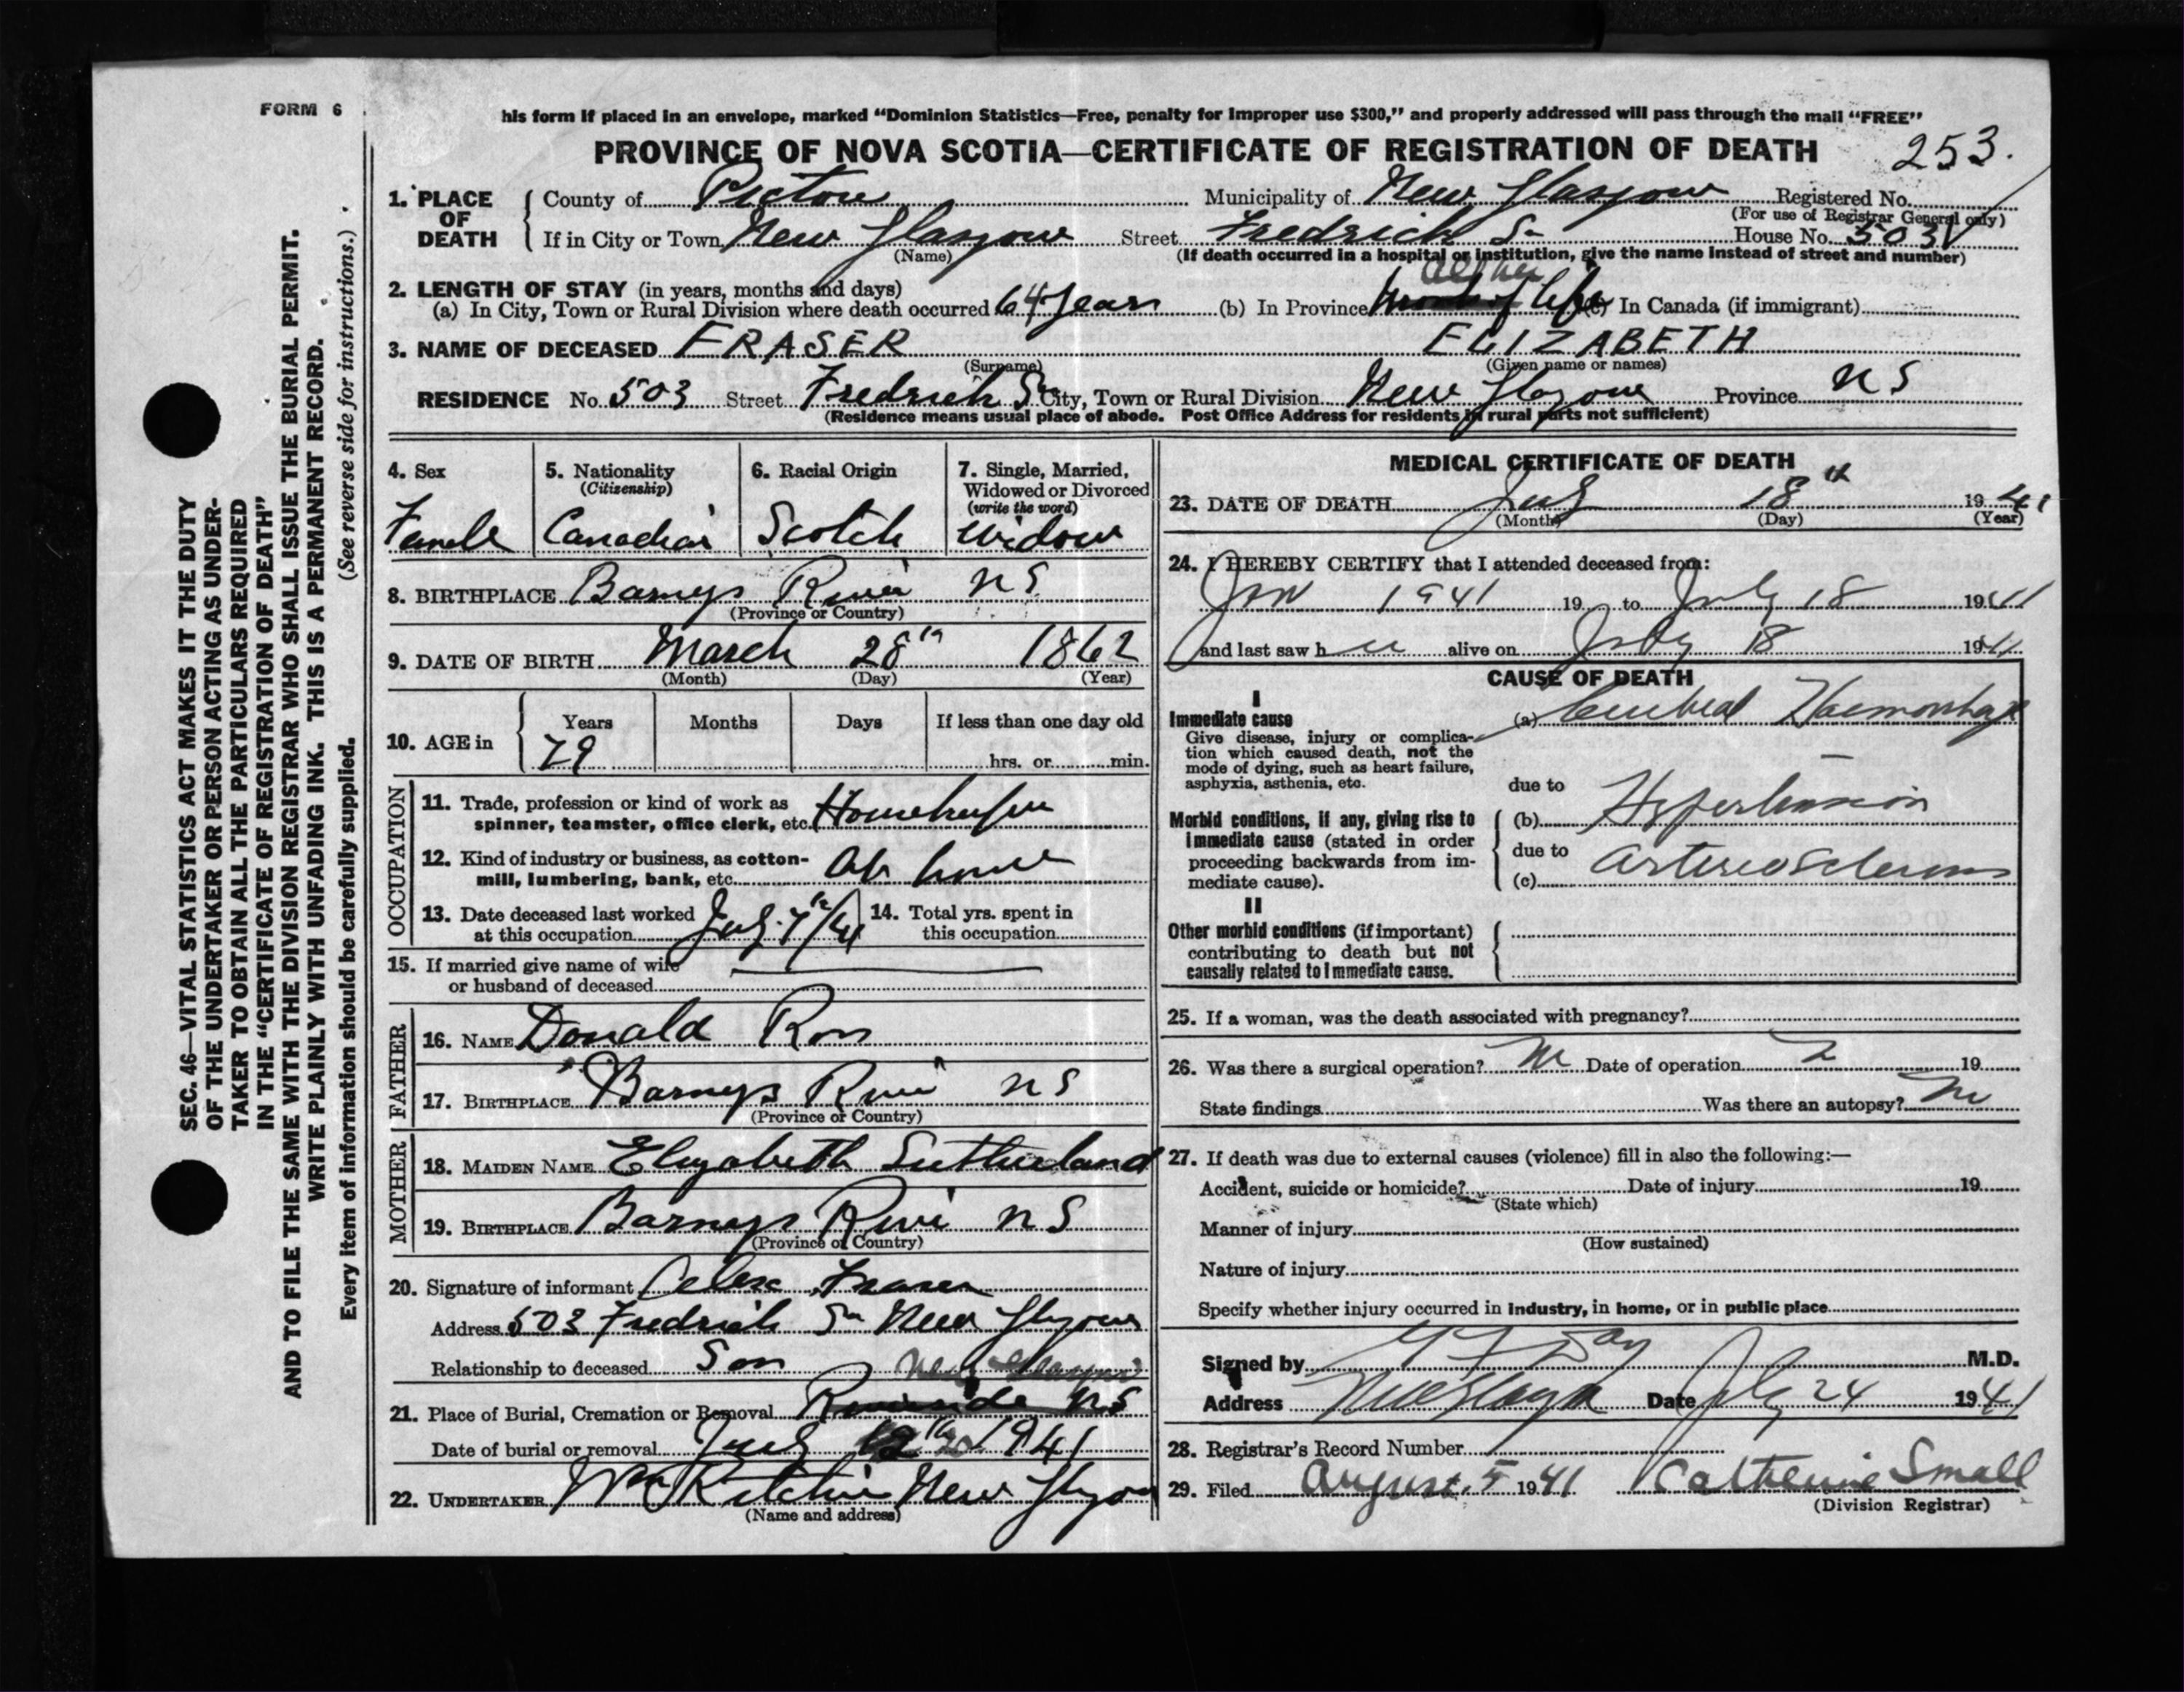 FORM 6
his form if placed in an envelope, marked "Dominion Statistics—Free, penalty for improper use $300," and properly addressed will pass through the mail "FREE"
PROVINCE OF NOVA SCOTIA—CERTIFICATE OF REGISTRATION OF DEATH 253.
1. PLACE OF DEATH
County of Pictou Municipality of New Glasgow Registered No.
(For use of Registrar General only)
If in City or Town New Glasgow Street Fredrick St House No. 503
(Name) (If death occurred in a hospital or institution, give the name instead of street and number)
2. LENGTH OF STAY (in years, months and days)
(a) In City, Town or Rural Division where death occurred 64 years (b) In Province all her life (c) In Canada (if immigrant)
3. NAME OF DECEASED FRASER ELIZABETH
(Surname) (Given name or names)
RESIDENCE No. 503 Street Fredrick St City, Town or Rural Division New Glasgow Province N S
(Residence means usual place of abode. Post Office Address for residents in rural parts not sufficient)
SEC. 46—VITAL STATISTICS ACT MAKES IT THE DUTY
OF THE UNDERTAKER OR PERSON ACTING AS UNDER-
TAKER TO OBTAIN ALL THE PARTICULARS REQUIRED
IN THE "CERTIFICATE OF REGISTRATION OF DEATH"
AND TO FILE THE SAME WITH THE DIVISION REGISTRAR WHO SHALL ISSUE THE BURIAL PERMIT.
WRITE PLAINLY WITH UNFADING INK. THIS IS A PERMANENT RECORD.
Every item of information should be carefully supplied. (See reverse side for instructions.)
4. Sex
Female
5. Nationality
(Citizenship)
Canadian
6. Racial Origin
Scotch
7. Single, Married,
Widowed or Divorced
(write the word)
Widow
8. BIRTHPLACE Barneys River N S
(Province or Country)
9. DATE OF BIRTH March 28th 1862
(Month) (Day) (Year)
10. AGE in
Years Months Days If less than one day old
79 hrs. or min.
OCCUPATION
11. Trade, profession or kind of work as
spinner, teamster, office clerk, etc. Housekeeper
12. Kind of industry or business, as cotton-
mill, lumbering, bank, etc. At home
13. Date deceased last worked
at this occupation July 7th/41
14. Total yrs. spent in
this occupation
15. If married give name of wife
or husband of deceased
FATHER
16. NAME Donald Ross
17. BIRTHPLACE Barneys River N S
(Province or Country)
MOTHER
18. MAIDEN NAME Elizabeth Sutherland
19. BIRTHPLACE Barneys River N S
(Province or Country)
20. Signature of informant Alex Fraser
Address 503 Fredrick St New Glasgow
Relationship to deceased Son
New Glasgow
21. Place of Burial, Cremation or Removal Riverside N S
Date of burial or removal July 20 1941
22. UNDERTAKER New Glasgow
(Name and address)
MEDICAL CERTIFICATE OF DEATH
23. DATE OF DEATH July 18th 1941
(Month) (Day) (Year)
24. I HEREBY CERTIFY that I attended deceased from:
Jan 1941 19 to July 18 1941
and last saw her alive on July 18 1941
CAUSE OF DEATH
I
Immediate cause (a) Cerebral Haemorrhage
Give disease, injury or complica-
tion which caused death, not the
mode of dying, such as heart failure,
asphyxia, asthenia, etc.
due to
Morbid conditions, if any, giving rise to
immediate cause (stated in order
proceeding backwards from im-
mediate cause).
(b) Hypertension
due to
(c) Arteriosclerosis
II
Other morbid conditions (if important)
contributing to death but not
causally related to immediate cause.
25. If a woman, was the death associated with pregnancy?
26. Was there a surgical operation? No Date of operation 19
State findings Was there an autopsy? No
27. If death was due to external causes (violence) fill in also the following:—
Accident, suicide or homicide? Date of injury 19
(State which)
Manner of injury
(How sustained)
Nature of injury
Specify whether injury occurred in industry, in home, or in public place
Signed by Day M.D.
Address New Glasgow Date July 24 1941
28. Registrar's Record Number
29. Filed August 5 1941 Catherine Small
(Division Registrar)